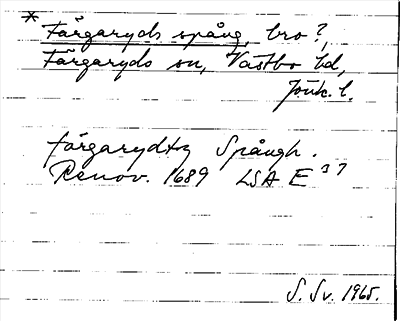 * Färgaryds spång, bro?,
Färgaryds sn, Västbo hd,
Jönk. l.
färgarydtz Spångh.
Renov. 1689 LSA E 37
S. Sv. 1965.